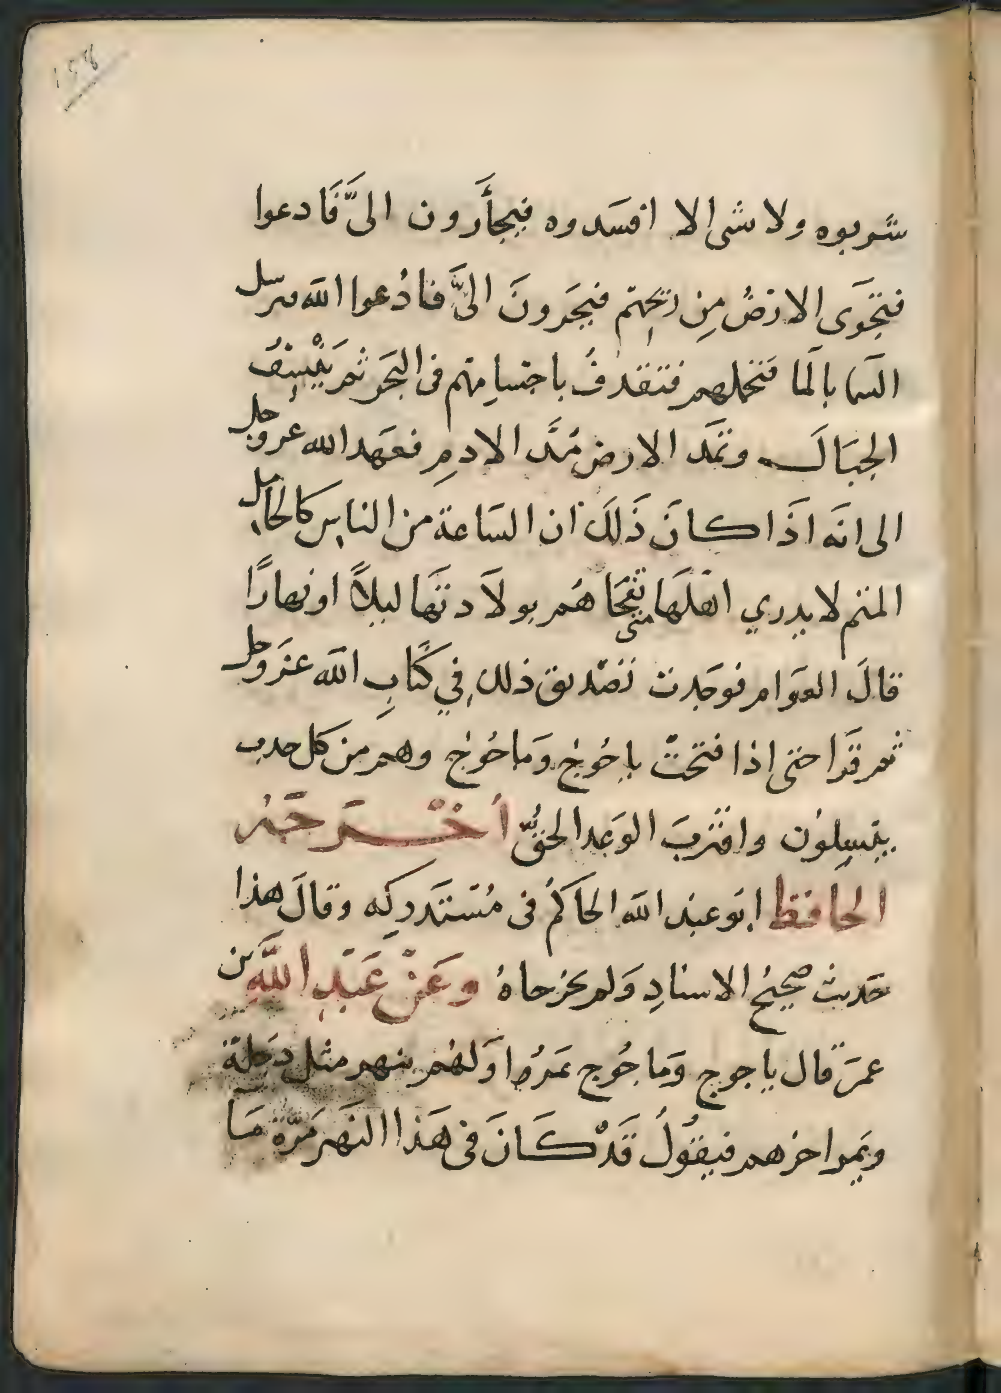 ١٥٨
شربوه ولا شى الا افسدوه فيجأرون الىَّ فادعوا
فتجوى الارض من ريحهم فيجرون الىَّ فادعوا الله فيرسل
السما بالما فتحملهم فتقذف باجسامهم فى البحر ثم ينسف
الجبال وتمد الارض مدَّ الاديم فعهد الله عز وجل
الى انه اذا كان ذلك ان الساعة من الناس كالحامل
المتم لا يدري اهلها متى تفجاهم بولادتها ليلاً او نهارًا
قال العوام فوجدت تصديق ذلك في كتاب الله عز وجل
ثم قرا حتى اذا فتحت ياجوج وماجوج وهم من كل حدب
ينسلون واقترب الوعد الحق أخرجه
الحافظ ابو عبد الله الحاكم فى مستدركه وقال هذا
حديث صحيح الاسناد ولم يخرجاه وعن عبد الله بن
عمر قال ياجوج وماجوج يمر اولهم بنهر مثل دجلة
ويمر اخرهم فيقول قد كان فى هذا النهر مرّة ما